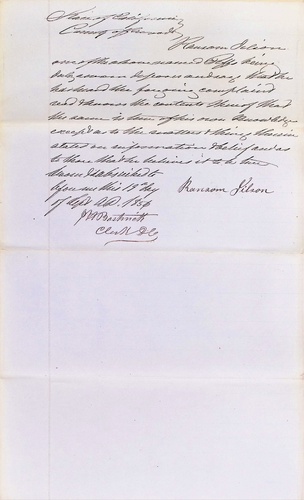 State of California
County of
Ransom Filson
one of the above named Plffs being
duly sworn deposes and says that he
has heard the forgoing complaint
and knows the contents thereof that
the same is true of his own knowledge
except as to the matters & things therein
stated on information & belief and as
to those that he believes it to be true
Sworn & subscribed to
before me this 19 day
of Sept A.D. 1856
Ransom Filson
Clerk